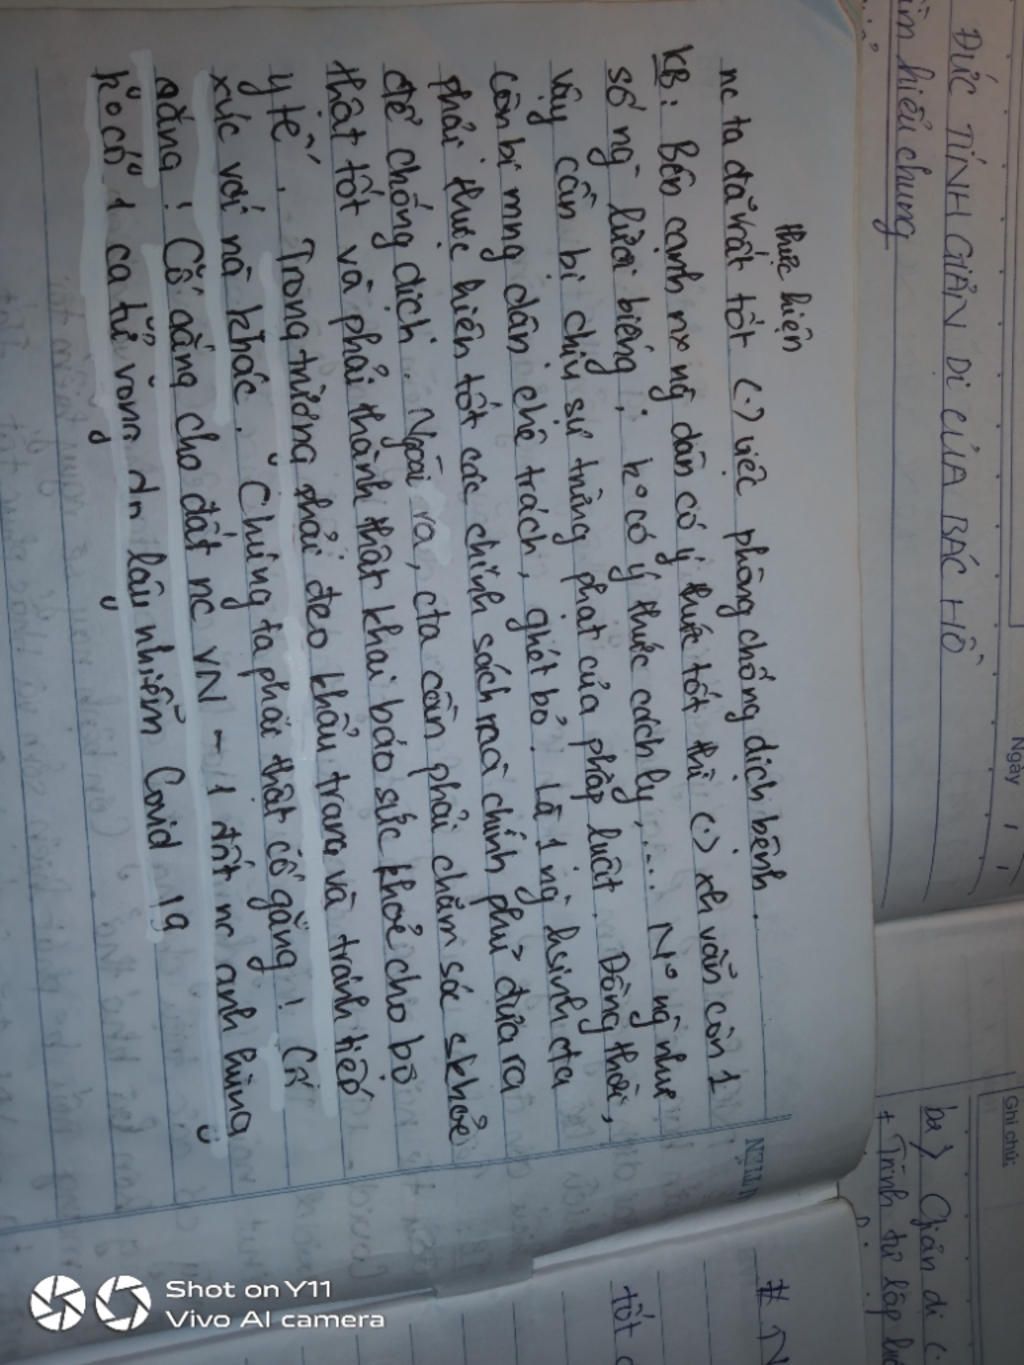 thực hiện
nc ta đã rất tốt (.) việc phòng chống dịch bệnh.
KB: Bên cạnh nx ng dân có ý thức tốt thì (.) xh vẫn còn 1
số ng lười biếng, k° có ý thức cách ly,... N° ng như
vậy cần bị chịu sự trừng phạt của pháp luật. Đồng thời,
còn bị mng dân chê trách, ghét bỏ. Là 1 ng hsinh cta
phải thực hiện tốt các chính sách mà chính phủ đưa ra
để chống dịch. Ngoài ra, cta cần phải chăm sóc skhoẻ
thật tốt và phải thành thật khai báo sức khoẻ cho bộ
y tế. Trong trường phải đeo khẩu trang và tránh tiếp
xúc với nà khác. Chúng ta phải thật cố gắng! Cố
gắng! Cố gắng cho đất nc VN - 1 đất nc anh hùng
k° có 1 ca tử vong do lâu nhiễm Covid 19
Ngày / /
ĐỨC TÍNH GIẢN DỊ CỦA BÁC HỒ
ìm hiểu chung
Ghi chú:
ba) Giản dị (.
+ Trình tự lập lu
tốt
Shot on Y11
Vivo AI camera